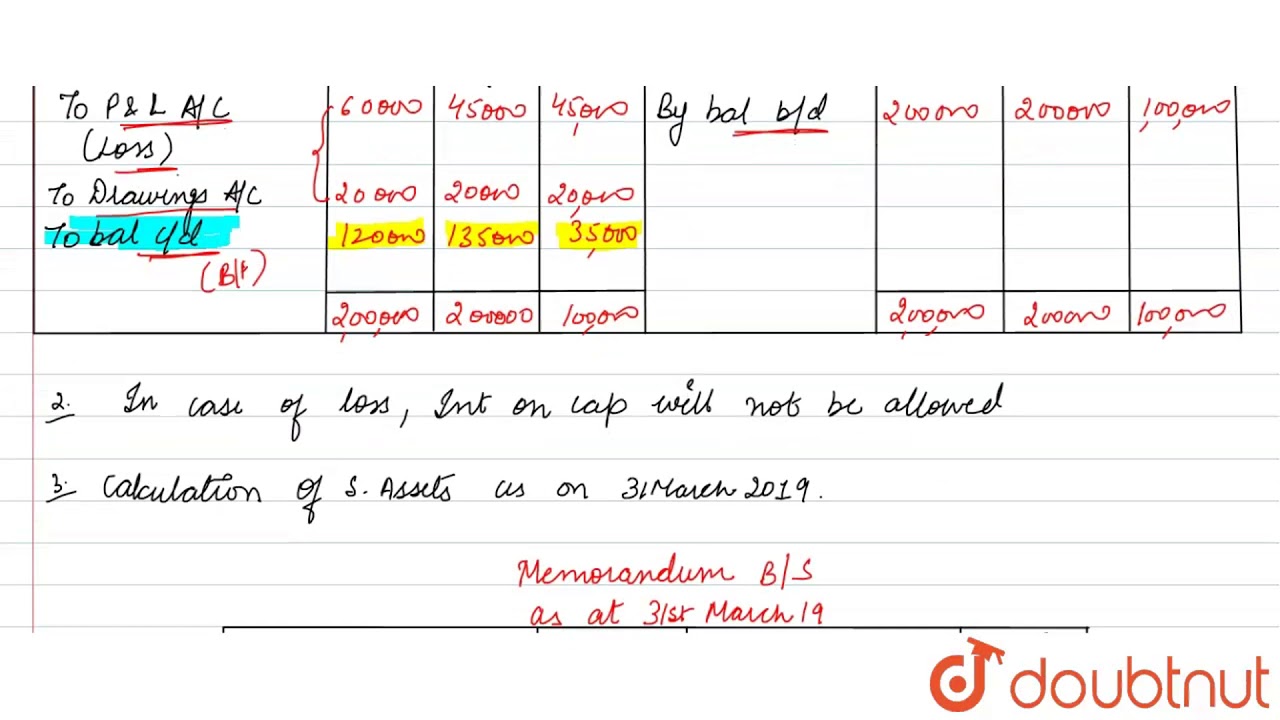 To P & L A/C 60000 45000 45,000 By bal b/d 200000 200000 1,00,000
(Loss)
To Drawings A/C 20000 20000 20,000
To bal c/d 120000 135000 35,000
(B/f)
2,00,000 200000 100,000 2,00,000 200000 100,000
2. In case of loss, Int on cap will not be allowed
3. Calculation of S. Assets as on 31 March 2019.
Memorandum B/S
as at 31st March 19
doubtnut